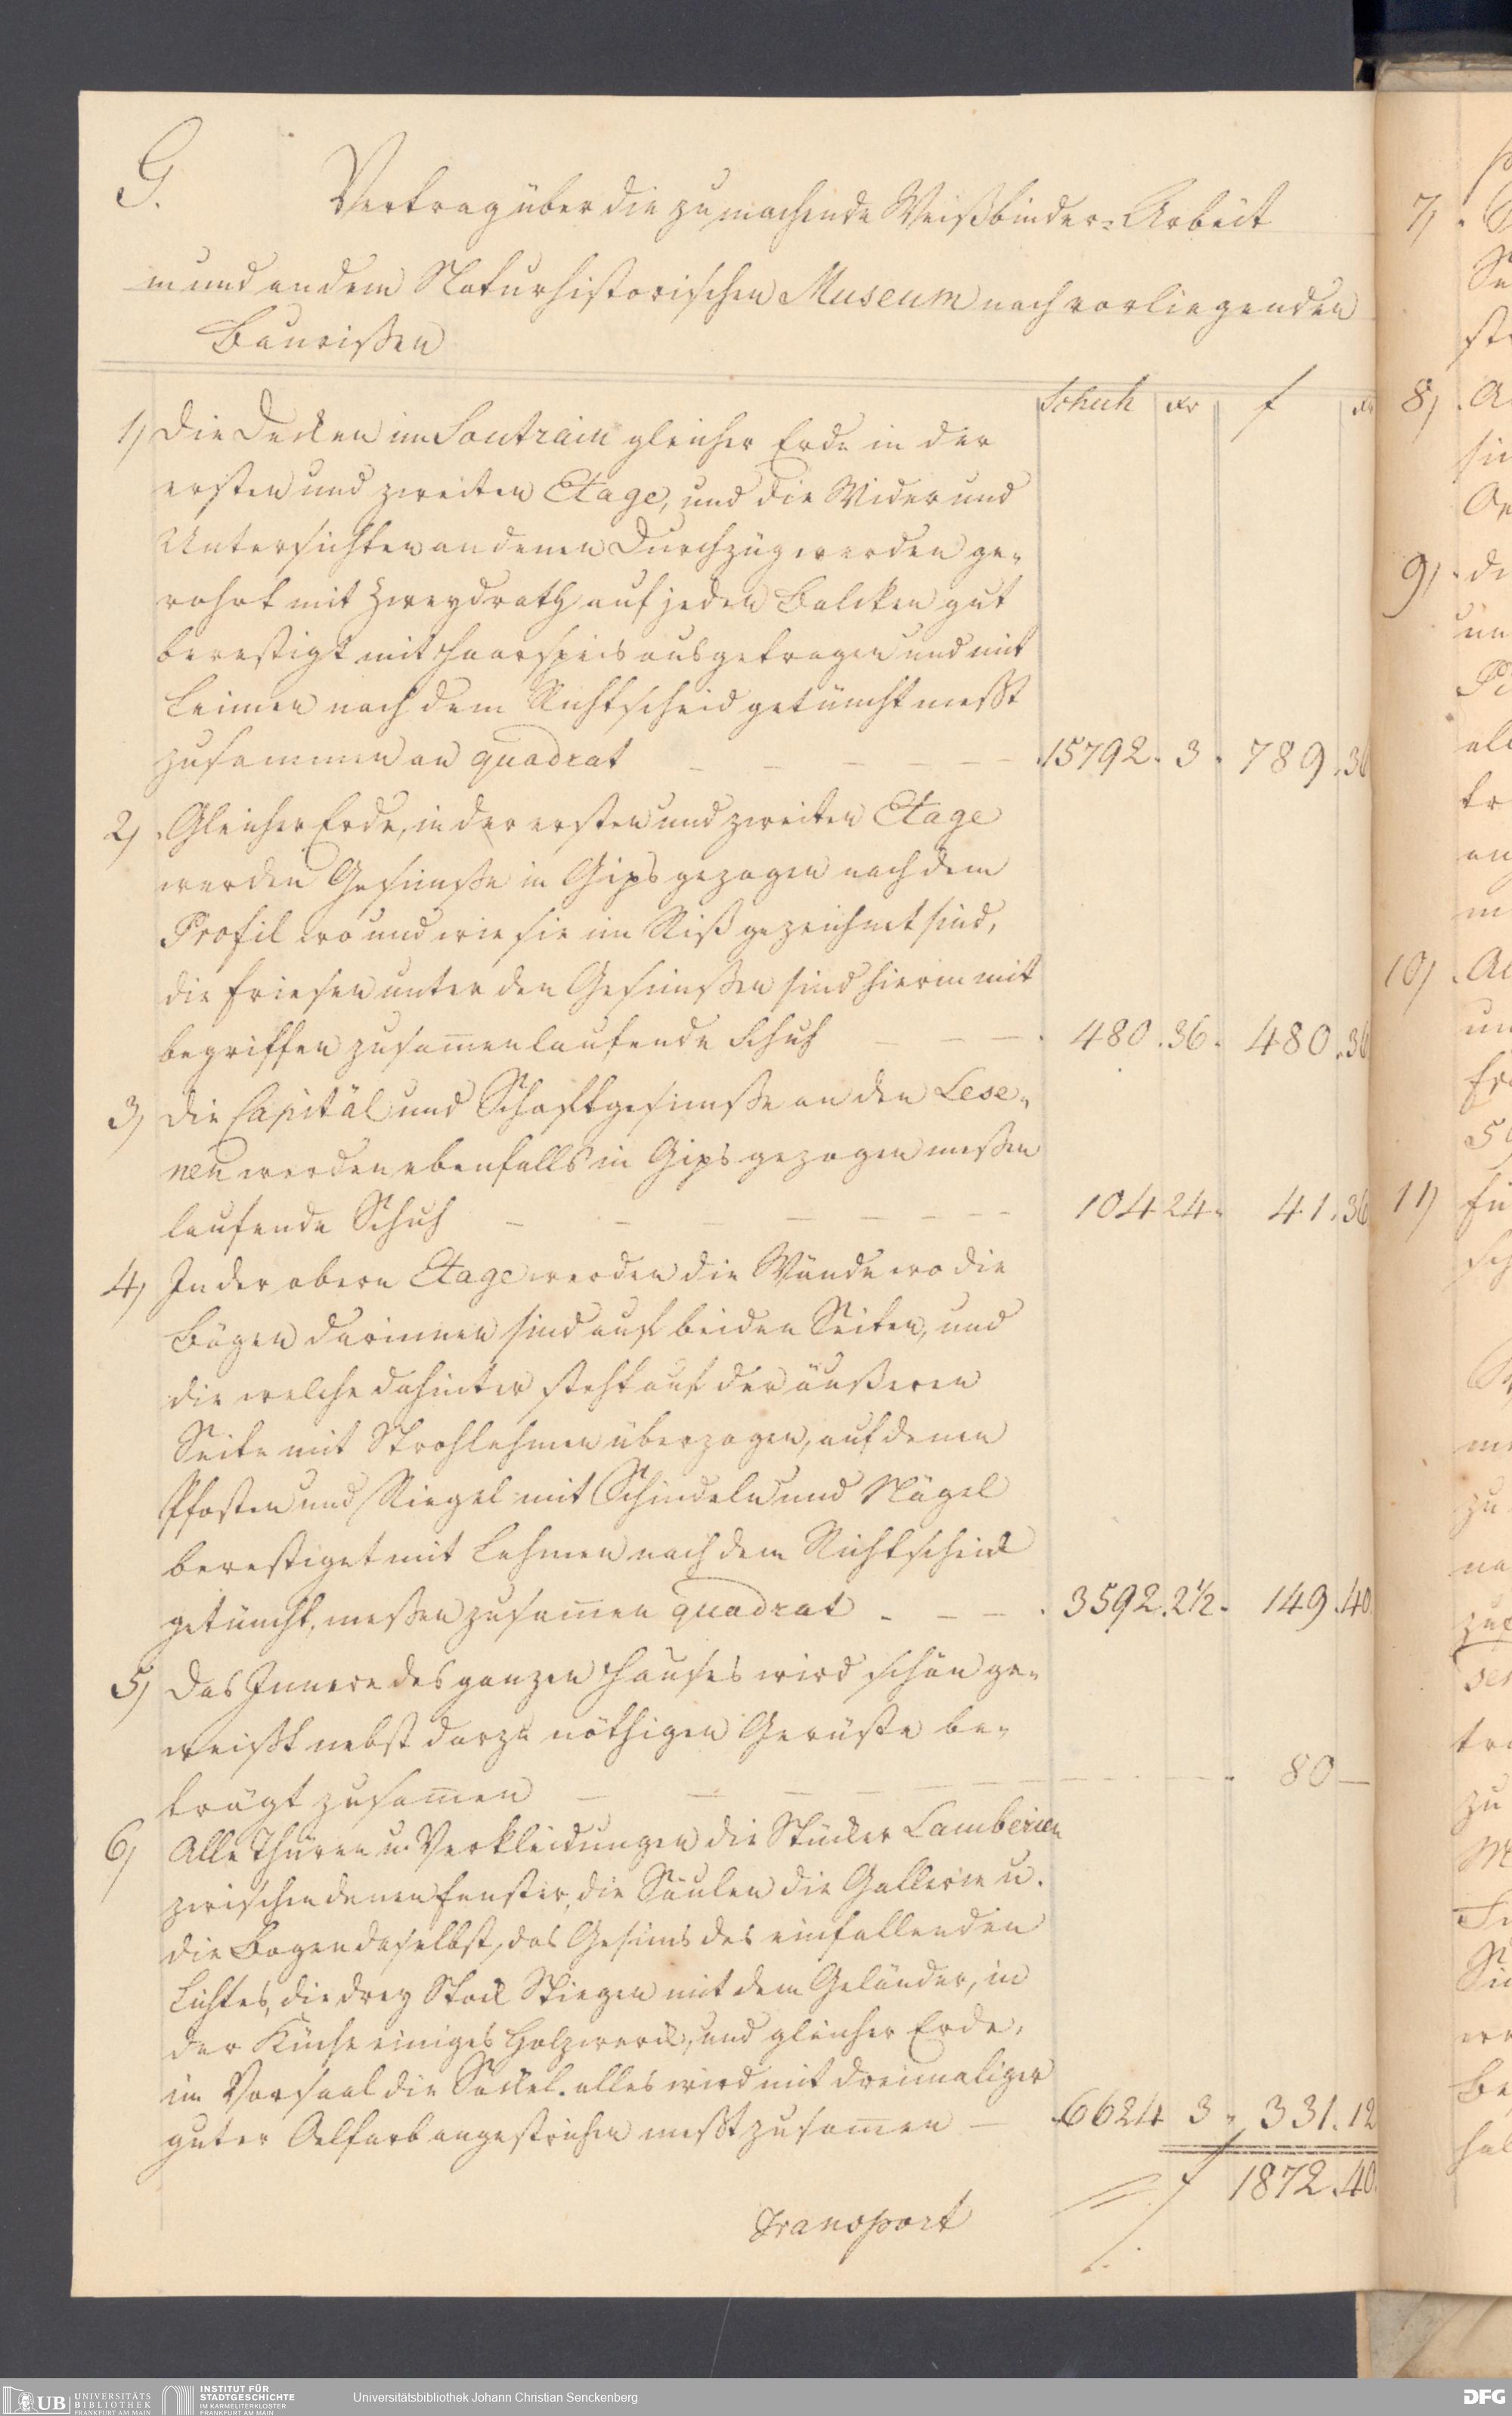 G.
Vertrag über die zu machende Weißbinder=Arbeit
in und an dem Naturhistorischen Museum nach vorliegenden
Baurißen
Schuh xr f xr
1) Die Decken im Soutrain gleicher Erde in der
ersten und zweiten Etage, und die Wider und
Untersichten an denen Durchzüg werden ge-
rohrt mit Zweydrath auf jeden Balcken gut
bevestigt mit Haarspeis ausgetragen und mit
Leimen nach dem Richtscheid getüncht messt
zusammen an quadrat 15792. 3. 789. 36
2) Gleicher Erde, in der ersten und zweiten Etage
werden Gesimße in Gips gezogen nach dem
Profil wo und wie sie im Riß gezeichnet sind,
die Friesen unter den Gesimßen sind hierin mit
begriffen zusam̅en laufende Schuh 480. 36. 480. 36
3) Die Capitäl und Schaftgesimße an den Lese-
nen werden ebenfalls in Gips gezogen meßen
laufende Schuh 104 24. 41. 36
4) In der obern Etage werden die Wände wo die
Bögen darinnen sind auf beiden Seiten, und
die welche dahinter steht auf der äußeren
Seite mit Strohlehmen überzogen, auf denen
Pfosten und Riegel mit Schindeln und Nägel
bevestiget mit Lehmen nach dem Richtscheid
getüncht, meßen zusam̅en quadrat 3592. 2½. 149. 40.
5) Das Innere des ganzen Hauses wird schön ge-
weißt nebst darzu nöthigen Gerüste be-
trägt zusam̅en 80 —
6) Alle Thüren u. Verkleidungen die Stücker Lamberien
zwischen denen Fenster, die Säulen die Gallerie u.
die Bogen daselbst, das Gesims des einfallenden
Lichtes, die drey Stock Stiegen mit dem Geländer, in
der Küche einiges Holzwerck, und gleicher Erde,
im Vorsaal die Sockel. alles wird mit dreimaliger
guter Oelfarb angestrichen messt zusam̅en 6624 3. 331. 12
f 1872. 40.
Transport
7)
8)
9)
10)
11)
UB UNIVERSITÄTS
BIBLIOTHEK
FRANKFURT AM MAIN
INSTITUT FÜR
STADTGESCHICHTE
IM KARMELITERKLOSTER
FRANKFURT AM MAIN
Universitätsbibliothek Johann Christian Senckenberg
DFG